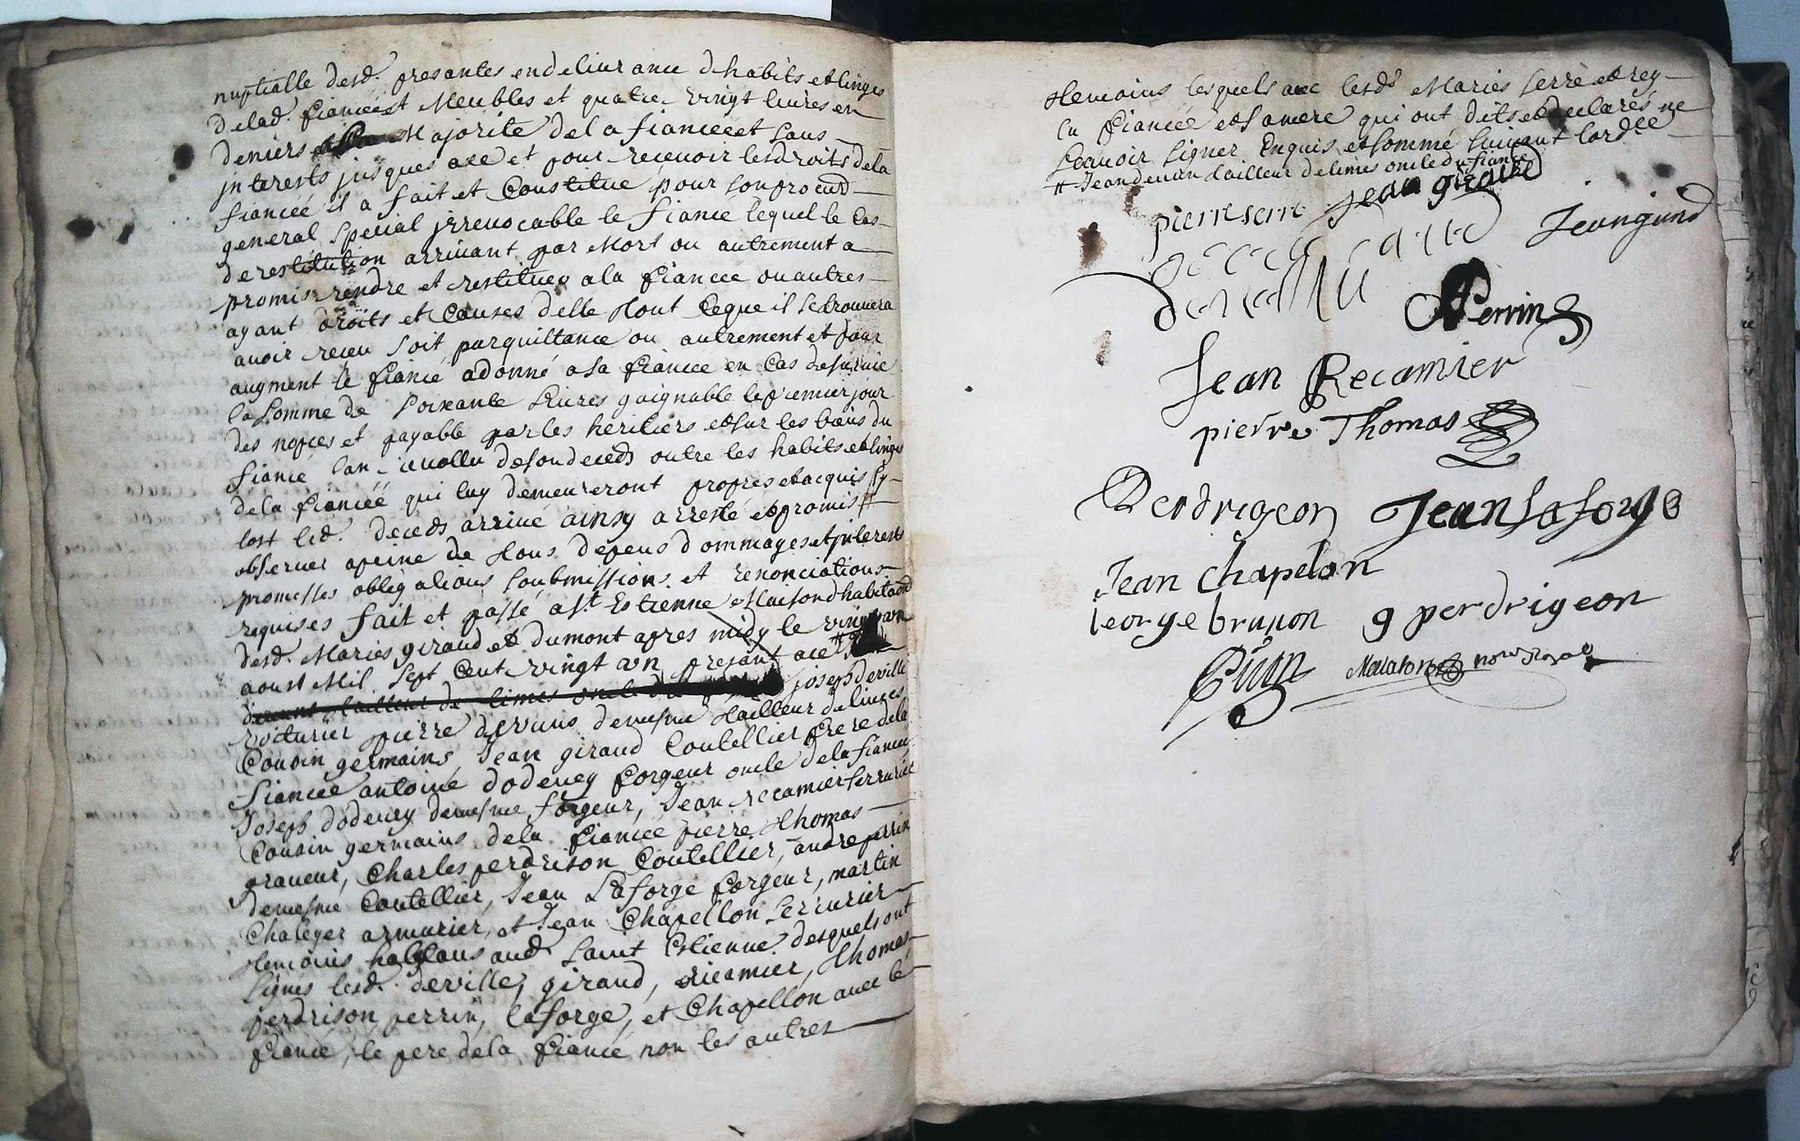 nuptialle desd. presantes en deliurance dhabits et linges
delad. fiancée et Meubles et quatre vingt liures en
deniers Majorité dela fiancée et sans
jnterests jusques ace et pour receuoir les droits dela
fiancée il a fait et Constitué pour son procur
general special jrreuocable le fiancé lequel le Cas
de restitution arriuant par Mort ou autrement a
promis rendre et restituer ala fiancée ou autres
ayant droits et Causes delle tout Ceque il se trouuera
auoir receu soit par quittance ou autrement et pour
augment le fiancé a donné a sa fiancée en Cas de suruie
la somme de soixante liures gaignable le premier jour
des nopces et payable par les heritiers et sur les biens du
fiancé lan reuollu de son deceds outre les habits et linges
de la fiancéé qui luy demeureront propres et acquis sy
tost led. deceds arriué ainsy arresté et promis
obseruer apeine de tous depens dommages et jnterests
promesses obligations soubmissions et renonciations
requises fait et passé a St Estienne Maison dhabitaõn
desd. Mariés giraud et dumont apres midy le vingt un
aoust Mil sept Cent vingt un presant ace
joseph deville
voiturier pierre deruns demesme tailleur de limes
Cousin germains, Jean giraud Coutellier frere dela
fiancée antoine dodeuey forgeur oncle dela fiancée
Joseph dodeuey demesme forgeur, Jean recamier serrurier
Cousin germains dela fiancée pierre Thomas
graueur, Charles perdrison Coutellier, andré perrin
demesme Coutellier, Jean Laforge forgeur, martin
Chaleyer armurier, et Jean Chapellon serrurier
temoins habitans aud. saint Estienne desquels ont
signés lesd. deville, giraud, ricamier, Thomas
perdrison perrin, laforge, et Chapellon auec le
fiancé, le pere dela fiancé non les autres
temoins lesquels auec lesd. Mariés serre et rey
la fiancée et sa mere qui ont dits et declarés ne
scauoir signer Enquis et sommé suiuant lordce
# Jean deruns tailleur de limes oncle du fiancé
pierre serre Jean giraud
Jean giraud
Perrin
Jean Recamier
pierre Thomas
Perdrigeon Jean laforge
Jean Chapelon
george brunon g perdrigeon